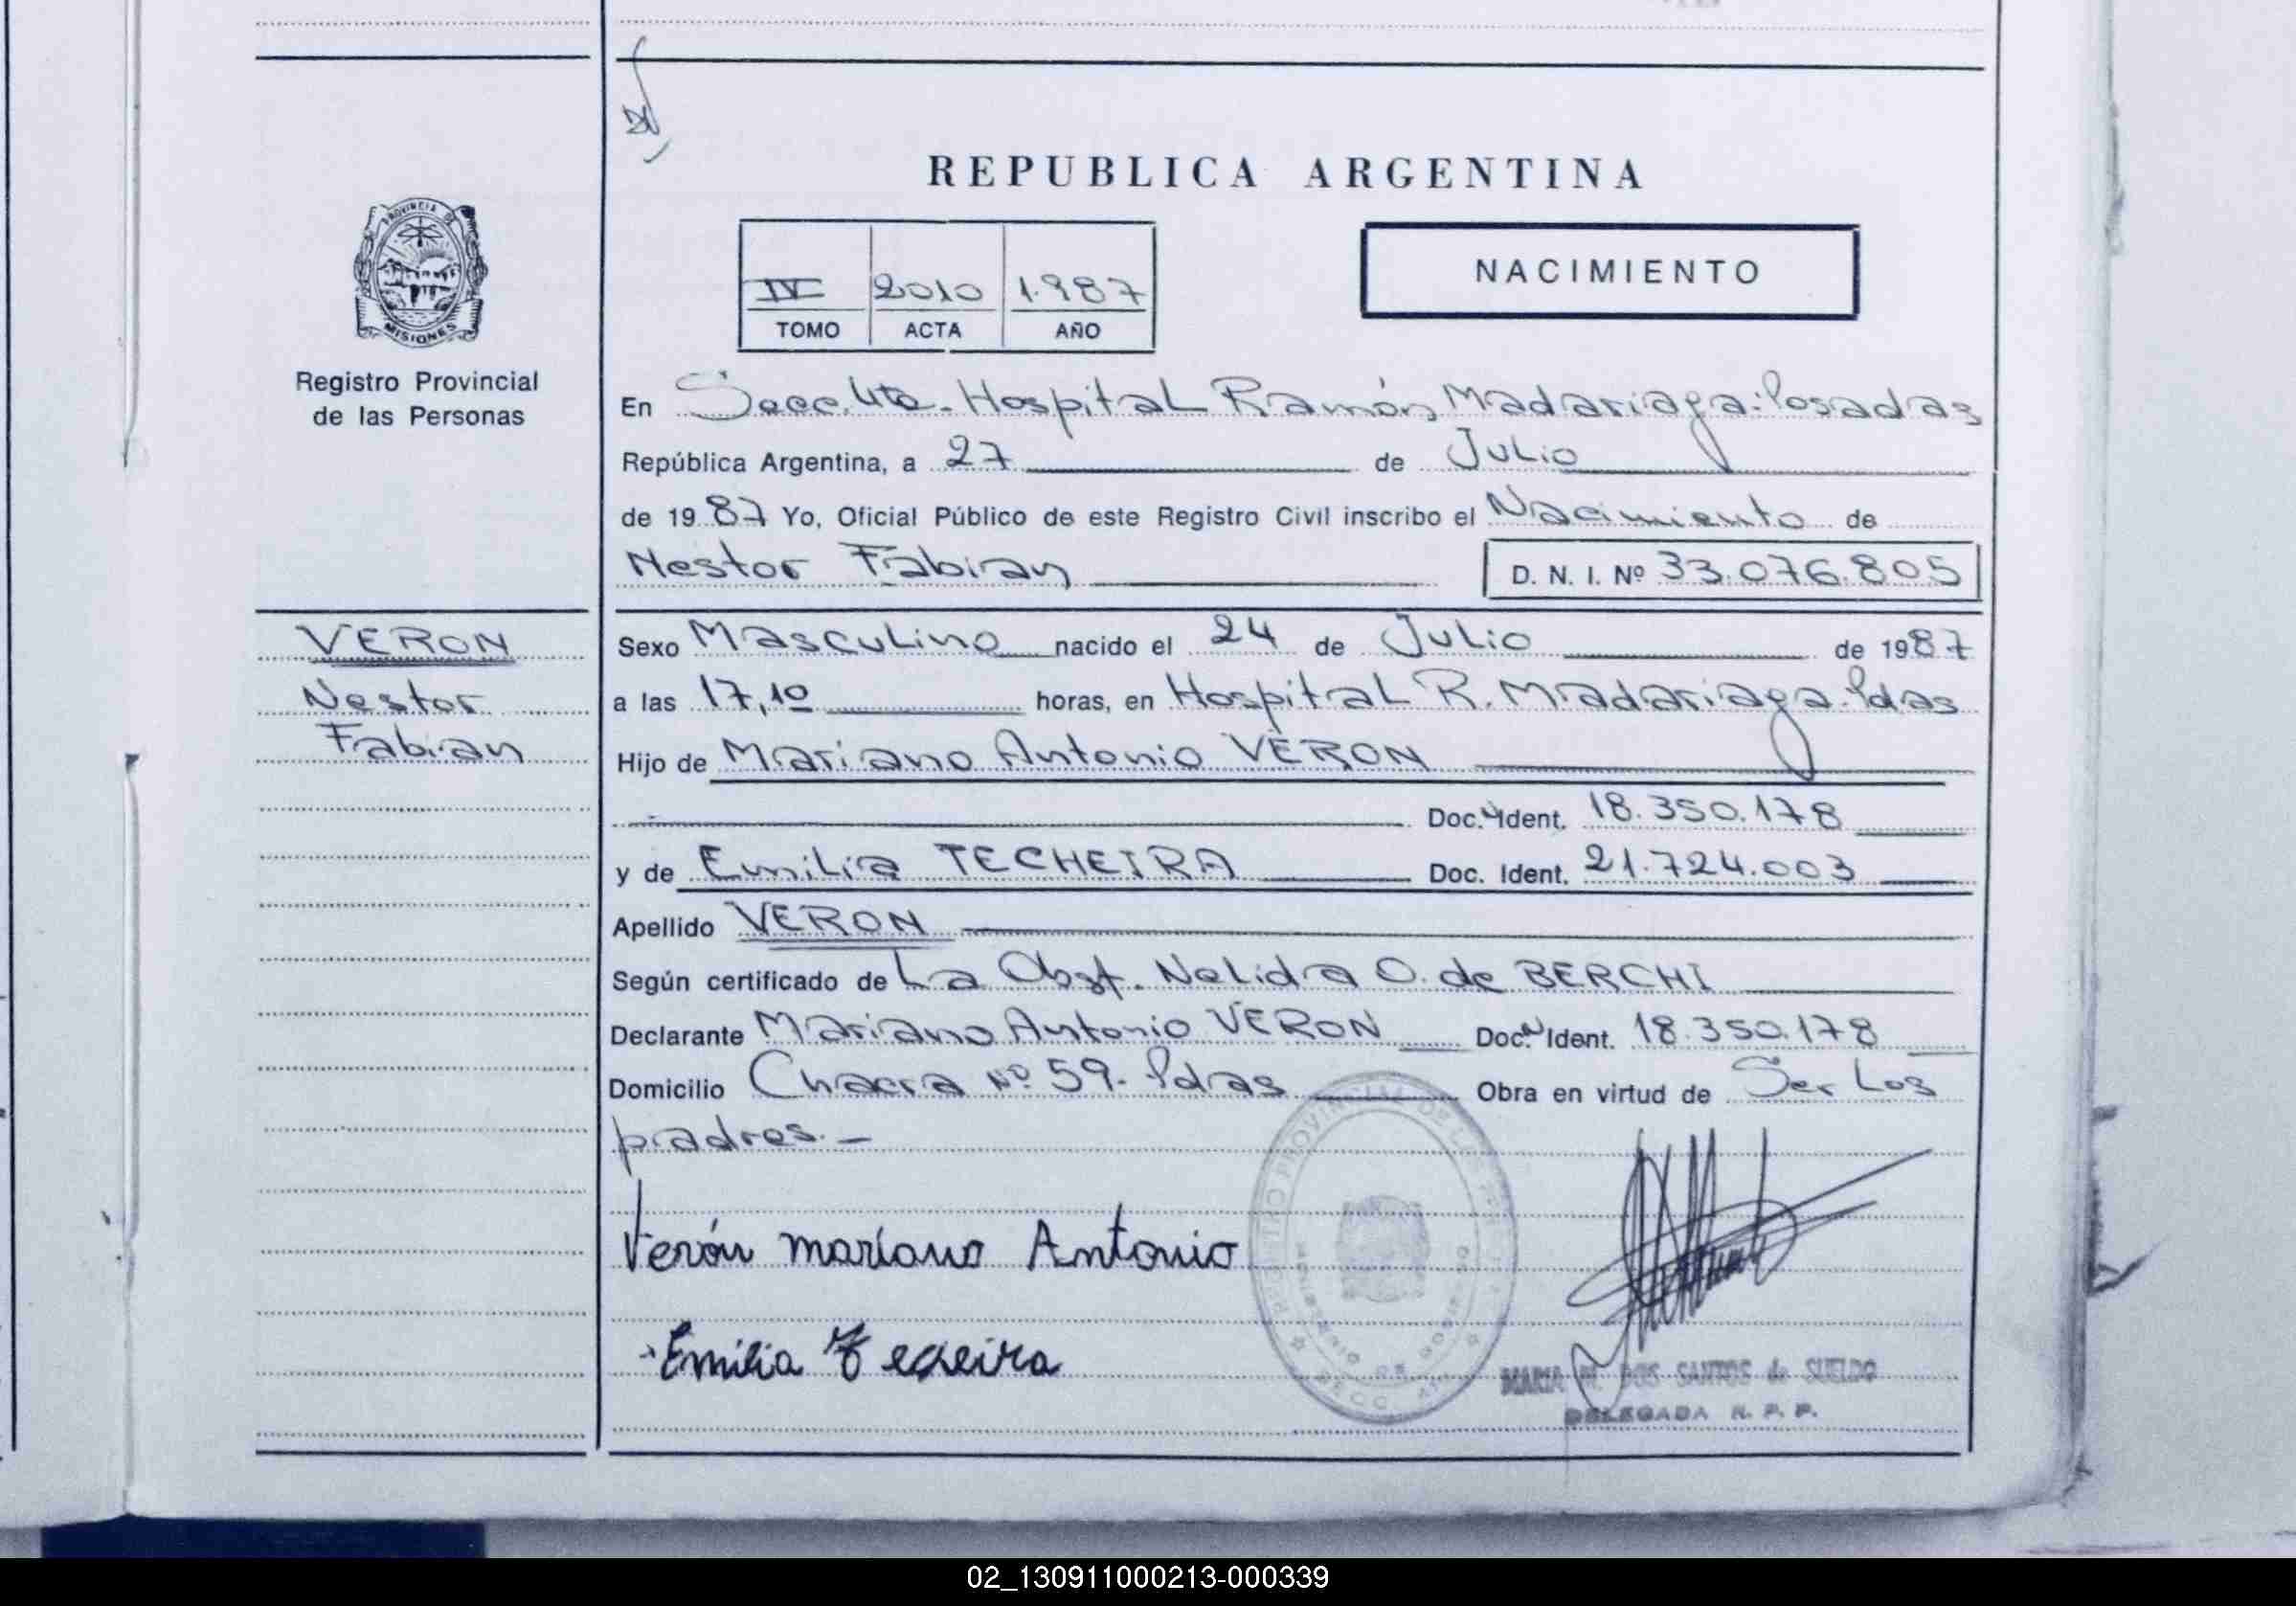 REPUBLICA ARGENTINA
PROVINCIA DE
MISIONES
Registro Provincial
de las Personas
IV 2010 1.987
TOMO ACTA AÑO
NACIMIENTO
En Secc. 4ta. Hospital Ramón Madariaga-Posadas
República Argentina, a 27 de Julio
de 1987 Yo, Oficial Público de este Registro Civil inscribo el Nacimiento de
Nestor Fabian D. N. I. Nº 33.076.805
VERON
Nestor
Fabian
Sexo Masculino nacido el 24 de Julio de 1987
a las 17,10 horas, en Hospital R. Madariaga-Pdas
Hijo de Mariano Antonio VERON
Doc. Ident. 18.350.178
y de Emilia TECHEIRA Doc. Ident. 21.724.003
Apellido VERON
Según certificado de La Obst. Nelida O. de BERCHI
Declarante Mariano Antonio VERON Doc. Ident. 18.350.178
Domicilio Chacra Nº 59- Pdas Obra en virtud de Ser Los
padres.-
Verón mariano Antonio
Emilia Texeira
REGISTRO PROVINCIAL DE LAS
MINISTERIO DE GOBIERNO
SECC. 4ta
MARIA DOS SANTOS de SUELDO
DELEGADA R. P. P.
02_130911000213-000339